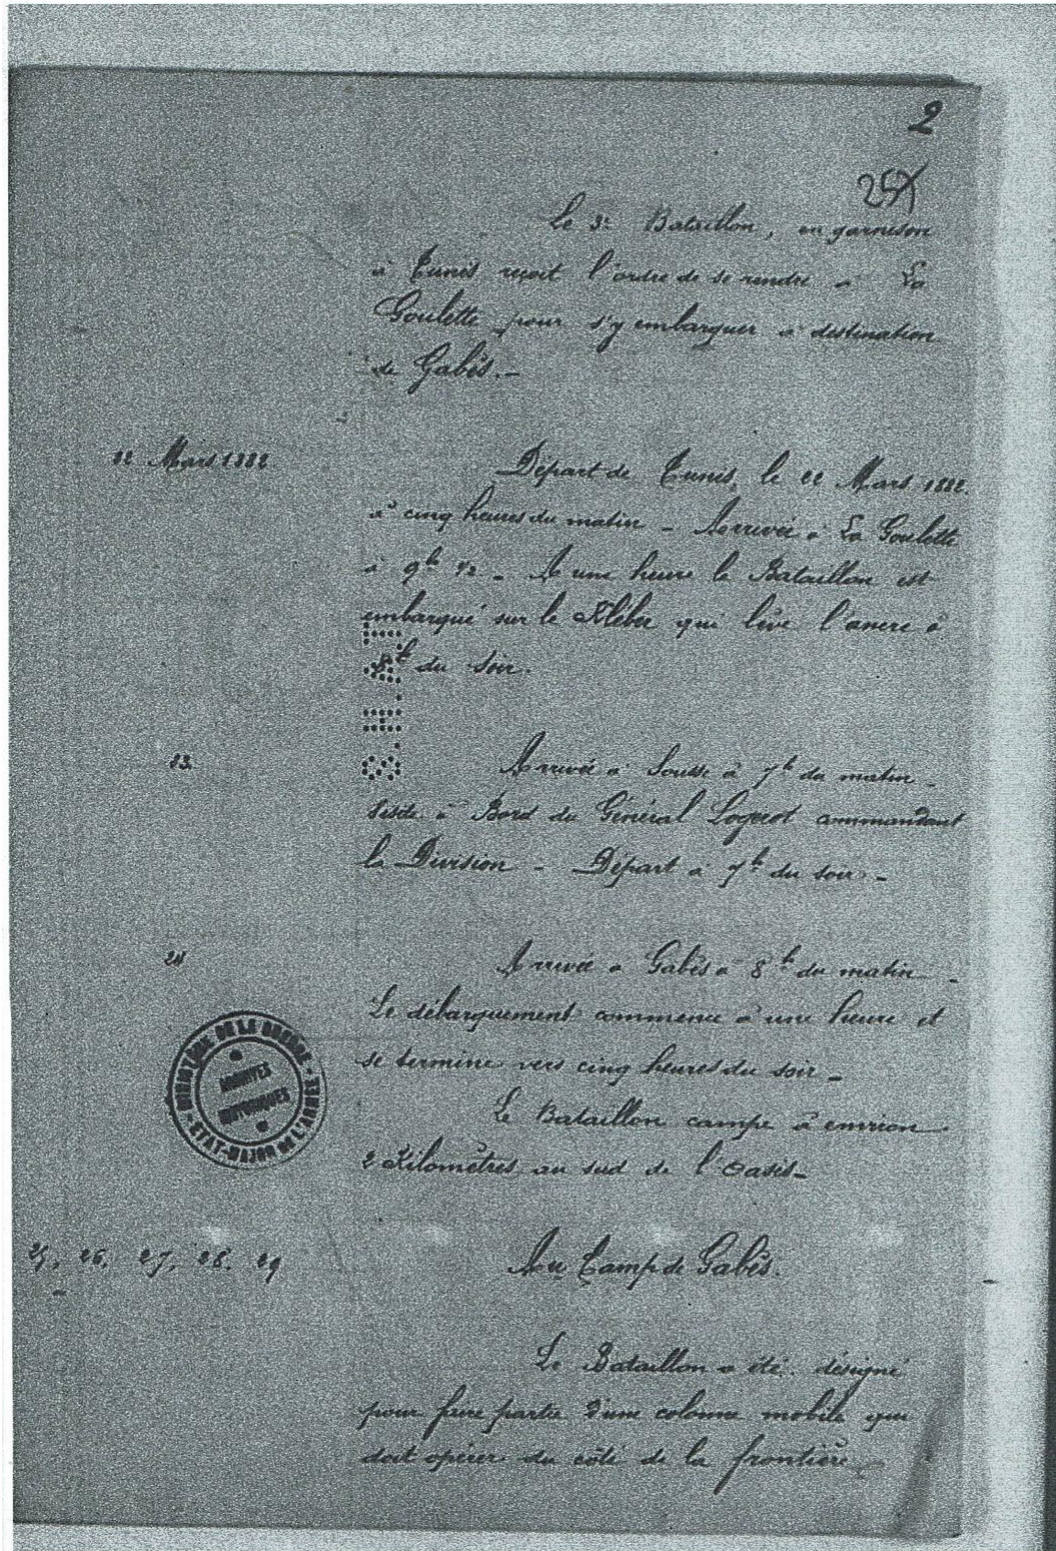 2
257
Le 3e Bataillon, en garnison
à Tunis reçoit l'ordre de se rendre à La
Goulette pour s'y embarquer à destination
de Gabès.-
22 Mars 1882
Départ de Tunis le 22 Mars 1882.
à cinq heures du matin - Arrivée à La Goulette
à 9h 1/2 - A une heure le Bataillon est
embarqué sur le Kléber qui lève l'ancre à
8h du soir.
23.
Arrivée à Sousse à 7h du matin -
Visite à Bord du Général Logerot commandant
la Division - Départ à 7h du soir -
24
Arrivée à Gabès à 8h du matin -
Le débarquement commence à une heure et
se termine vers cinq heures du soir -
Le Bataillon campe à environ
2 Kilomètres au sud de l'oasis-
MINISTÈRE DE LA GUERRE
ARCHIVES
HISTORIQUES
ETAT-MAJOR DE L'ARMÉE
25, 26, 27, 28, 29
Au Camp de Gabès.
Le Bataillon a été désigné
pour faire partie d'une colonne mobile qui
doit opérer du côté de la frontière